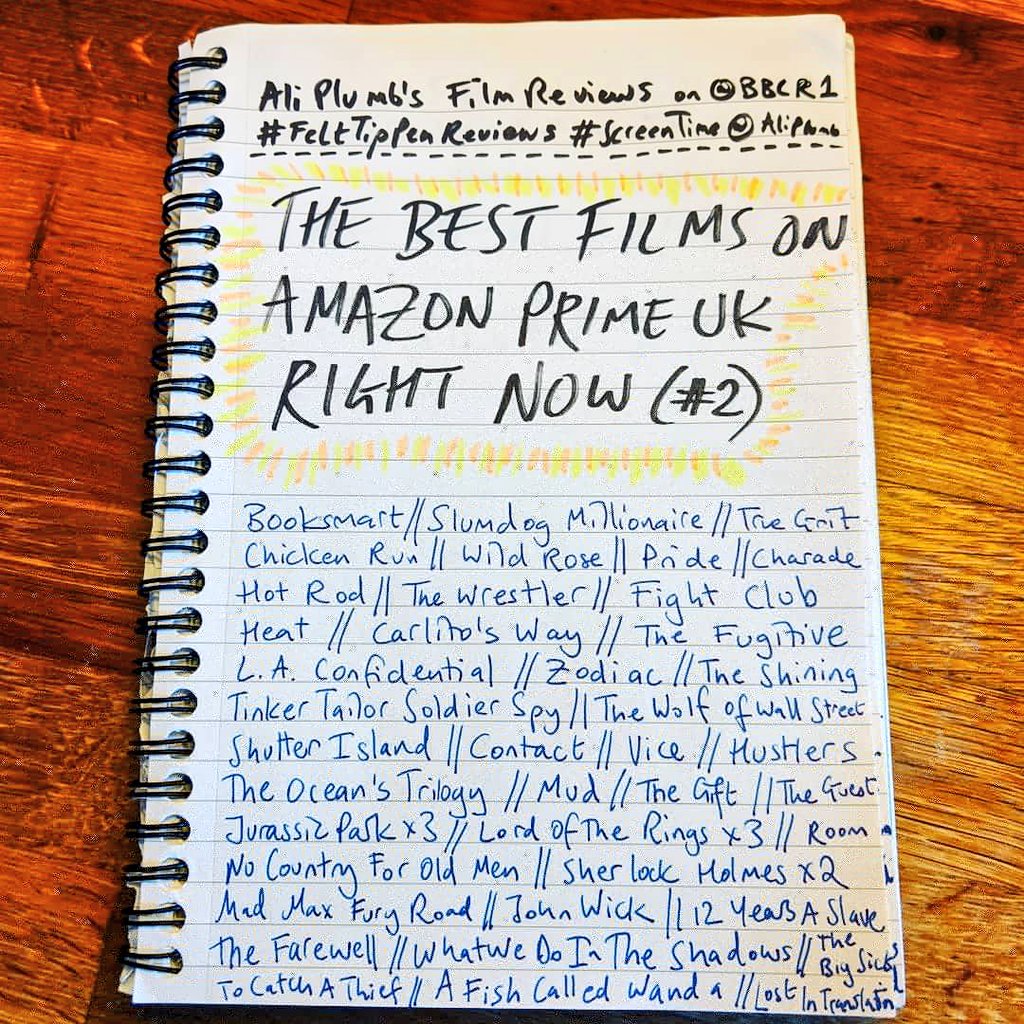 Ali Plumb's Film Reviews on @BBCR1
#FeltTipPenReviews #ScreenTime @AliPlumb
THE BEST FILMS ON
AMAZON PRIME UK
RIGHT NOW (#2)
Booksmart // Slumdog Millionaire // True Grit
Chicken Run // Wild Rose // Pride // Charade
Hot Rod // The Wrestler // Fight Club
Heat // Carlito's Way // The Fugitive
L.A. Confidential // Zodiac // The Shining
Tinker Tailor Soldier Spy // The Wolf of Wall Street
Shutter Island // Contact // Vice // Hustlers
The Ocean's Trilogy // Mud // The Gift // The Guest
Jurassic Park x3 // Lord Of The Rings x3 // Room
No Country For Old Men // Sherlock Holmes x2
Mad Max Fury Road // John Wick // 12 Years A Slave
The Farewell // What We Do In The Shadows // The Big Sick
To Catch A Thief // A Fish Called Wanda // Lost In Translation